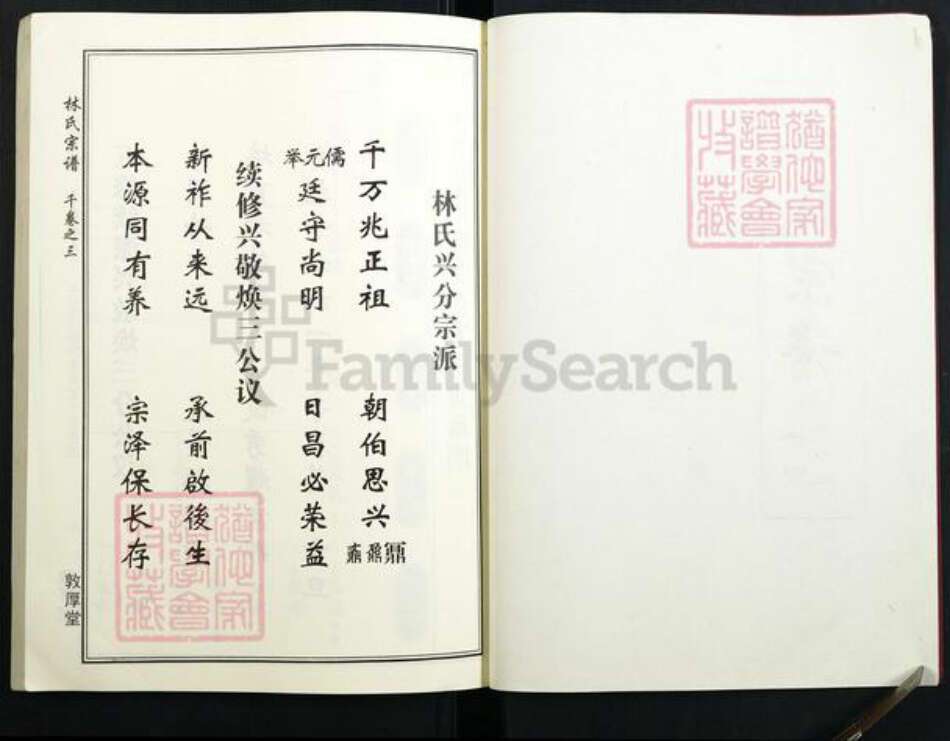 林氏兴分宗派
千万兆正祖 朝伯思兴
儒元举
廷守尚明 日昌必荣益
续修兴敬焕三公议
新祚从来远 承前啟後生
本源同有养 宗泽保长存
林氏宗谱 千卷之三
敦厚堂
FamilySearch
譜學會
收藏
譜學會
收藏